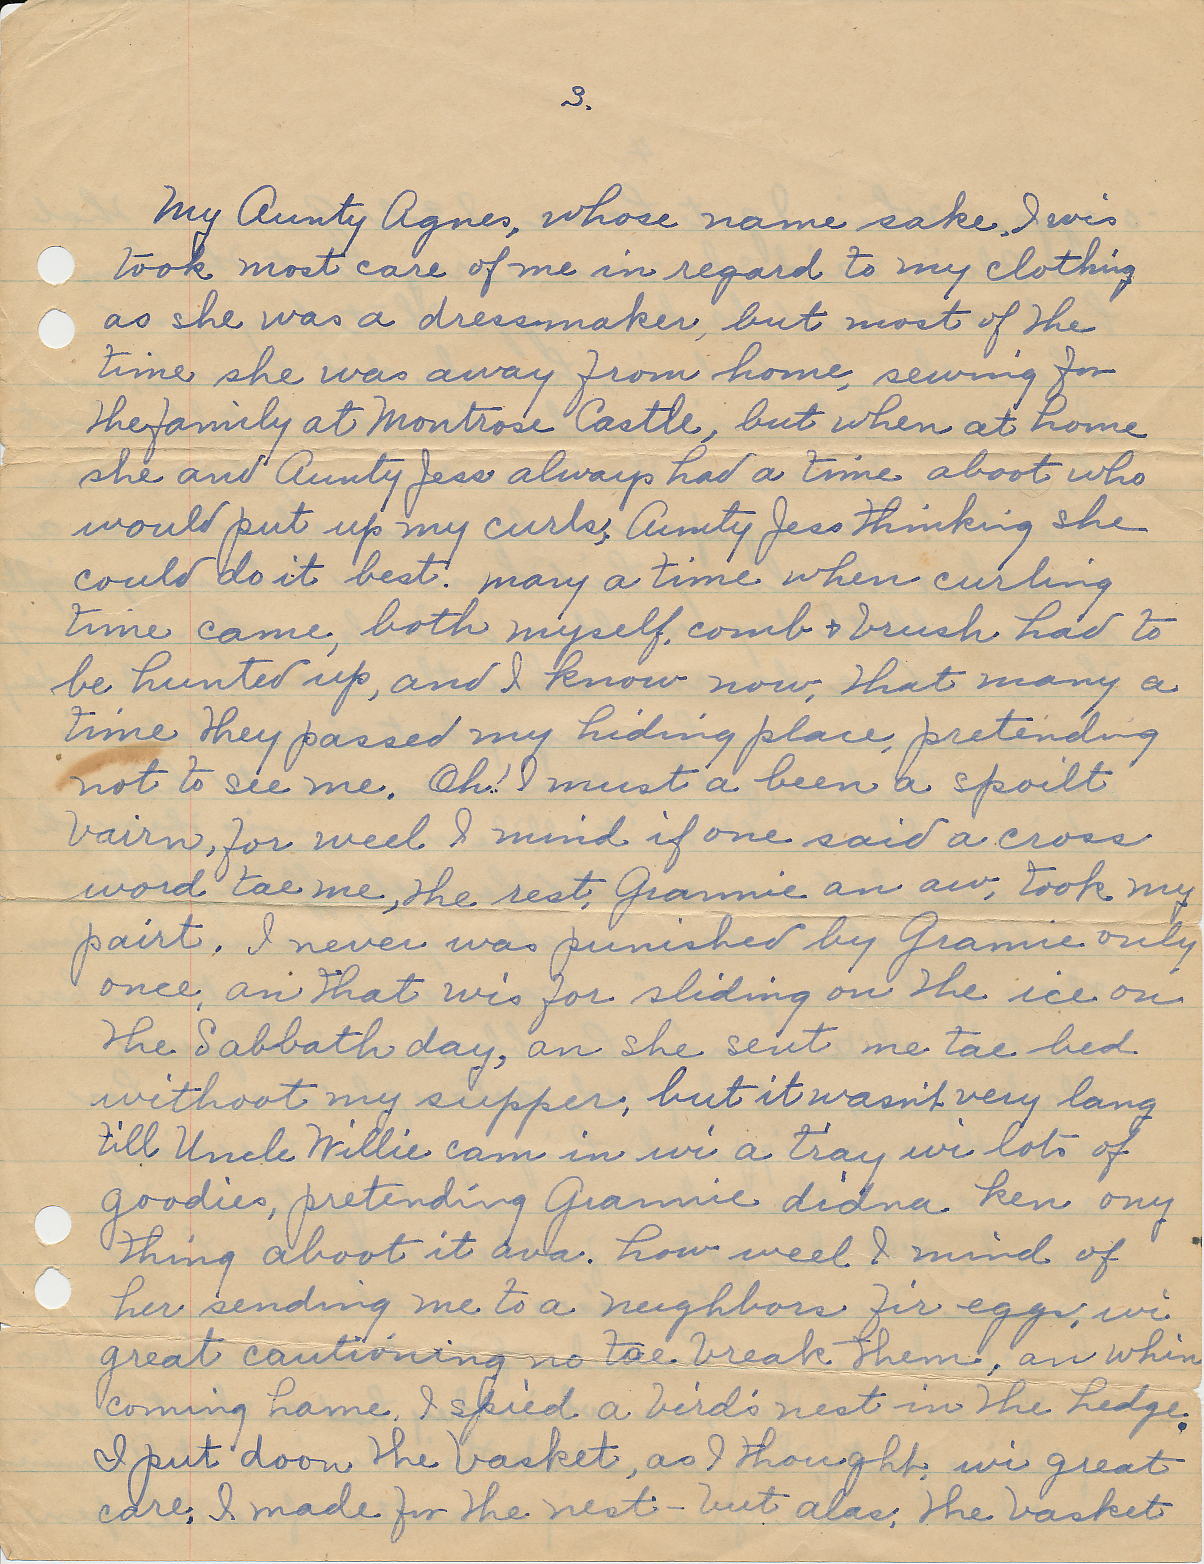 3.
My Aunty Agnes, whose name sake, I wis
took most care of me in regard to my clothing
as she was a dressmaker, but most of the
time she was away from home, sewing for
the family at Montrose Castle, but when at home
she and Aunty Jess always had a time aboot who
would put up my curls; Aunty Jess thinking she
could do it best. many a time when curling
time came, both myself, comb & brush had to
be hunted up, and I know now, that many a
time they passed my hiding place, pretending
not to see me. Oh! I must a been a spoilt
bairn, for weel I mind if one said a cross
word tae me, the rest, Grannie an aw, took my
pairt. I never was punished by Grannie only
once, an that wis for sliding on the ice on
the Sabbath day, an she sent me tae bed
withoot my supper, but it wasn't very lang
till Uncle Willie cam in wi a tray wi lots of
goodies, pretending Grannie didna ken ony
thing aboot it ava. how weel I mind of
her sending me to a neighbors fir eggs, wi
great cautioning no tae break them, an whin
coming hame, I spied a bird's nest in the hedge.
I put doon the basket, as I thought, wi great
care; I made for the nest - but alas; the basket